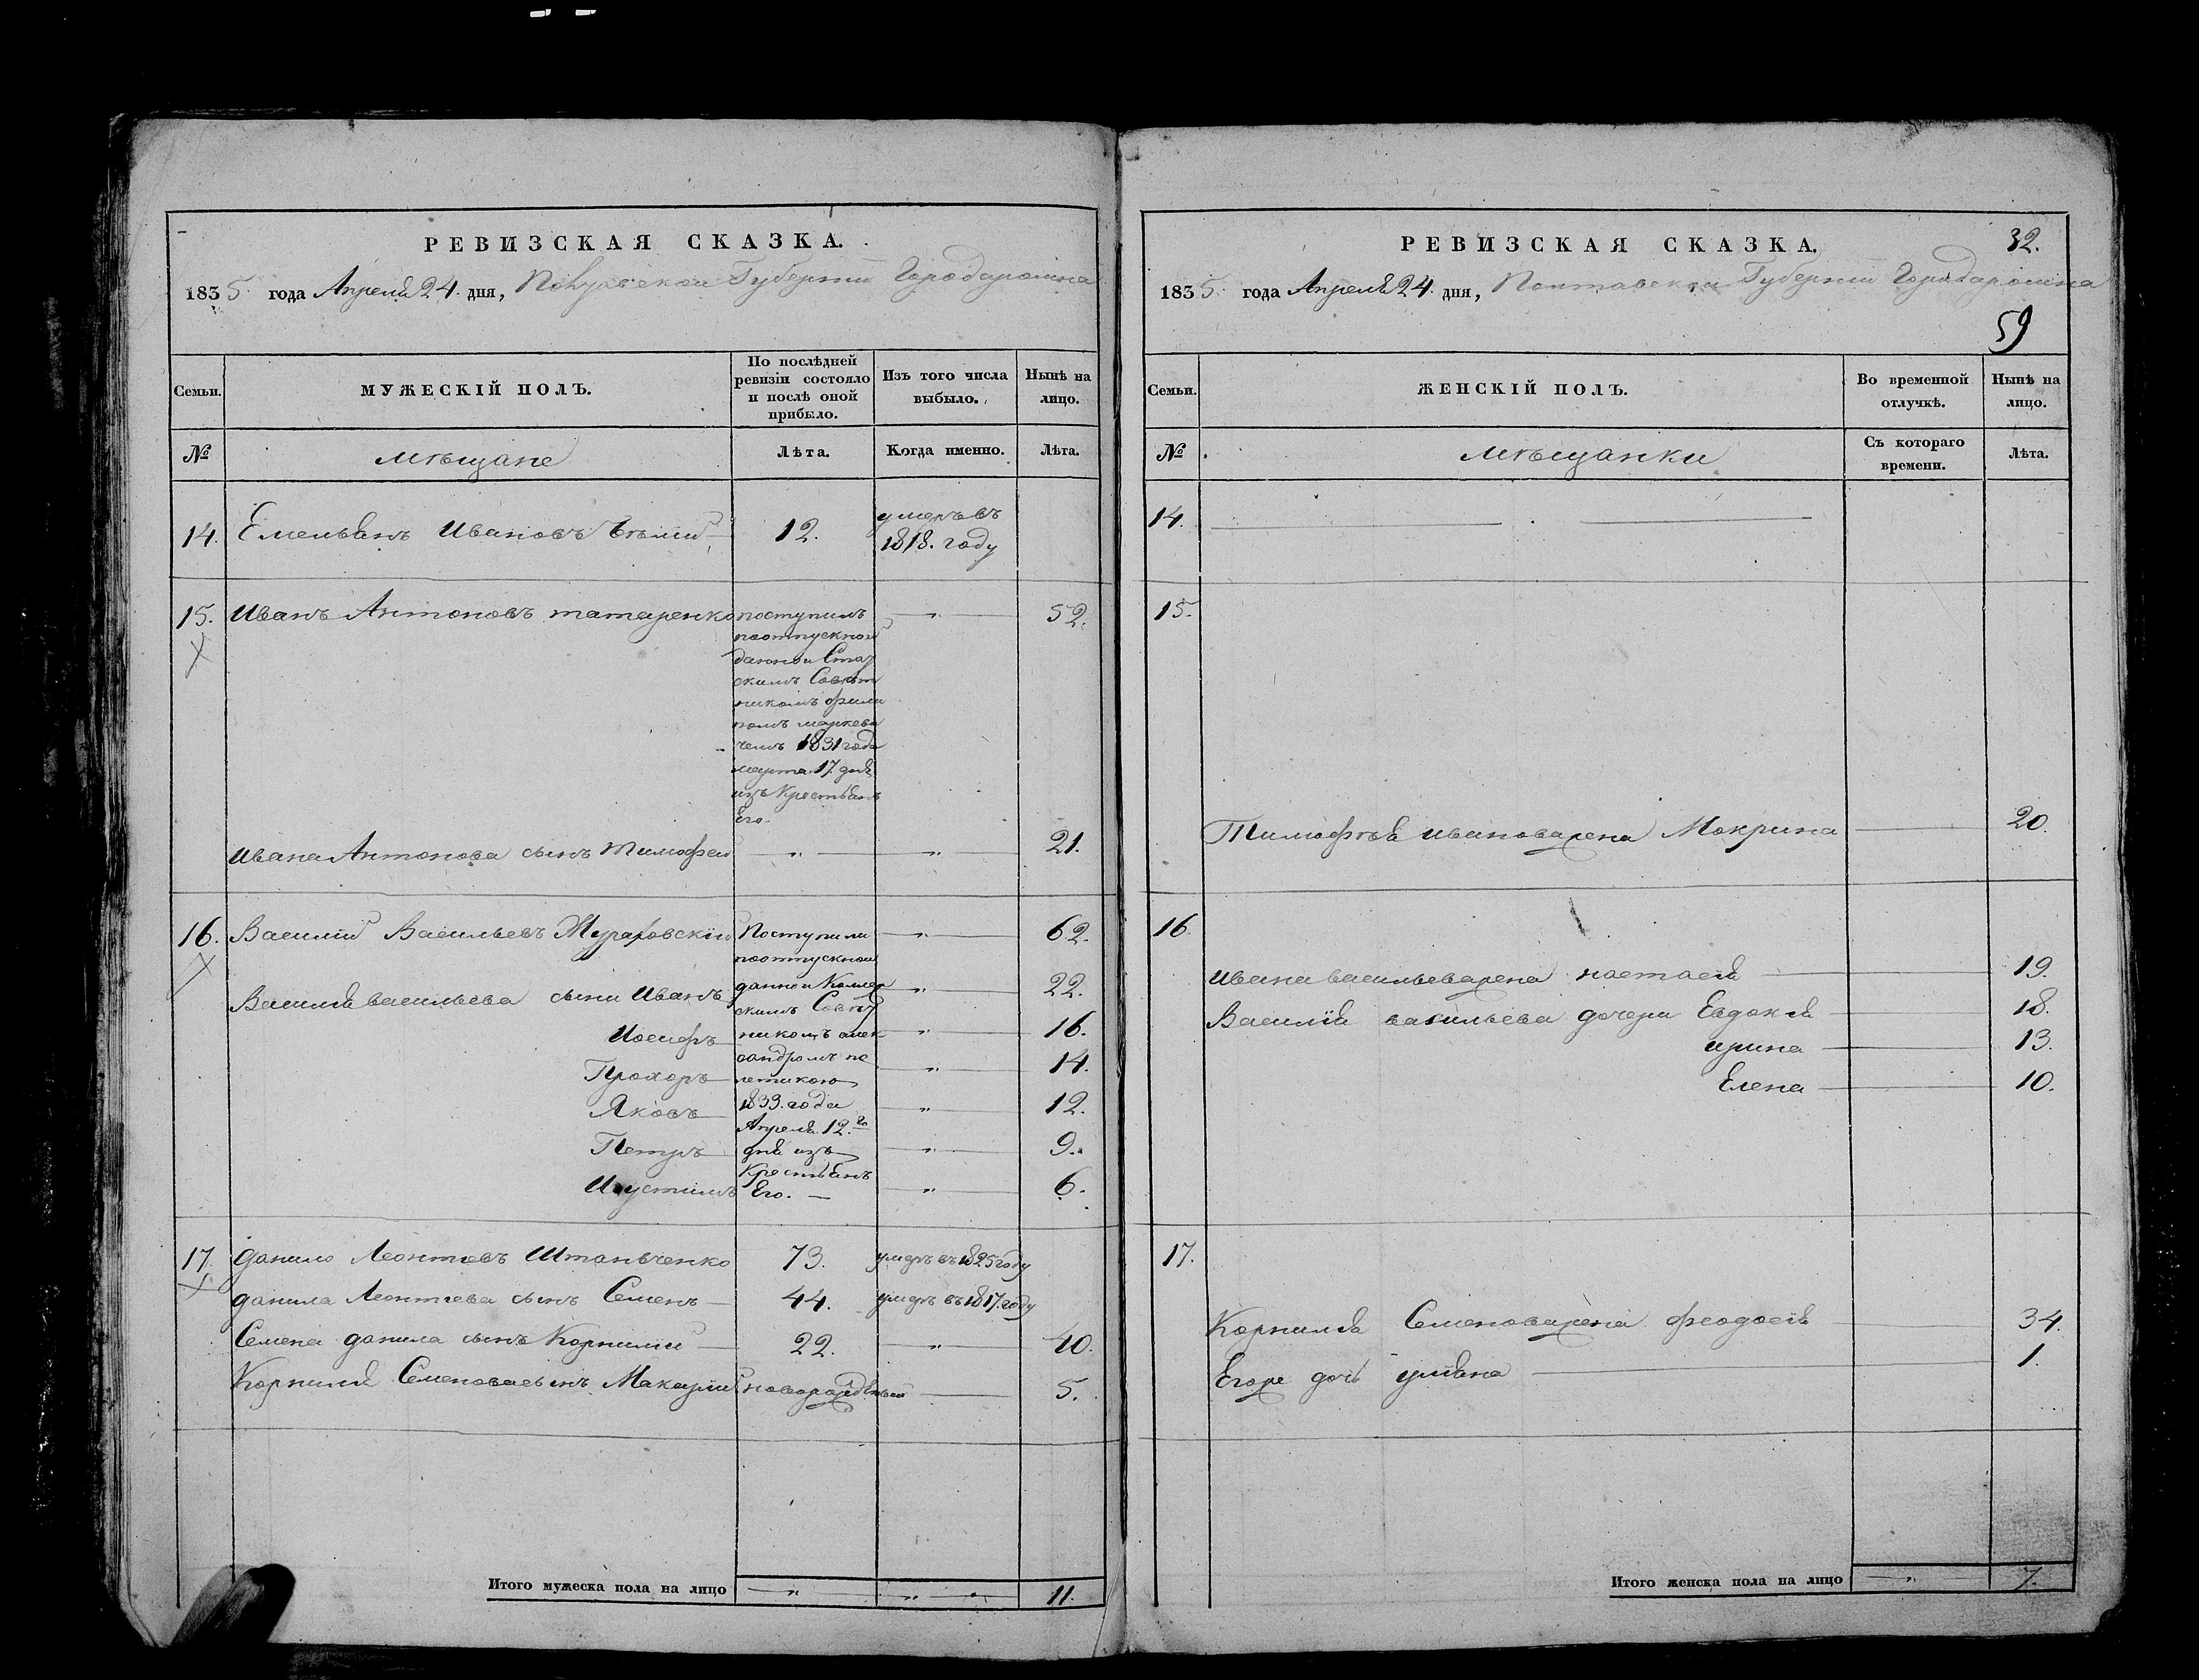 РЕВИЗСКАЯ СКАЗКА.
1835 года Апреля 24. дня, Губернии Города
Семьи.
МУЖЕСКІЙ ПОЛЪ.
По послѣдней ревизіи состояло и послѣ оной прибыло.
Изъ того числа выбыло.
Нынѣ на лицо.
№
мѣщане
Лѣта.
Когда именно.
Лѣта.
14. Емельянъ Ивановъ 12. умеръ въ
1818. году
15. Иванъ Антоновъ татаренко поступилъ 52.
поотпускной
данной Стат
скимъ Совѣт
никомъ Фили
помъ маркеви
чемъ 1831 года
марта 17. дня
изъ Крестьянъ
Его.
Ивана Антонова сынъ Тимофей — " — " — 21.
16. Василий Васильевъ Поступили — " — 62.
поотпускной
Василия васильева сыны Иванъ данной Коллеж — " — 22.
скимъ Совѣт
Иосифъ никомъ алек — " — 16.
сандромъ по
Прохоръ летикою — " — 14.
Яковъ 1833. года — " — 12.
Апреля 12.го
Петръ дня изъ — " — 9.
Крестьянъ
Иустинъ Его. — " — 6.
17. Данило Леонтіевъ Штаньченко 73. умеръ въ 1825 году
данила Леонтіева сынъ Семенъ 44. умеръ въ 1817. году
Семена данила сынъ Корнилий 22. — " — 40.
Корнилия Семенова сынъ Макарий новорожденный 5.
Итого мужеска пола на лицо — " — " — 11.
РЕВИЗСКАЯ СКАЗКА. 32.
1835 года Апреля 24. дня, Полтавской Губернии Города
59
Семьи.
ЖЕНСКІЙ ПОЛЪ.
Во временной отлучкѣ.
Нынѣ на лицо.
№
мѣщанки
Съ котораго времени.
Лѣта.
14.
15.
Тимофѣя иванова жена Мокрина 20.
16.
Ивана васильева жена настасия 19.
Василия васильева дочери Евдокия 18.
ирина 13.
Елена 10.
17.
Корнилия Семенова жена феодосия 34.
Егоже дочь улияна 1.
Итого женска пола на лицо — " — 7.